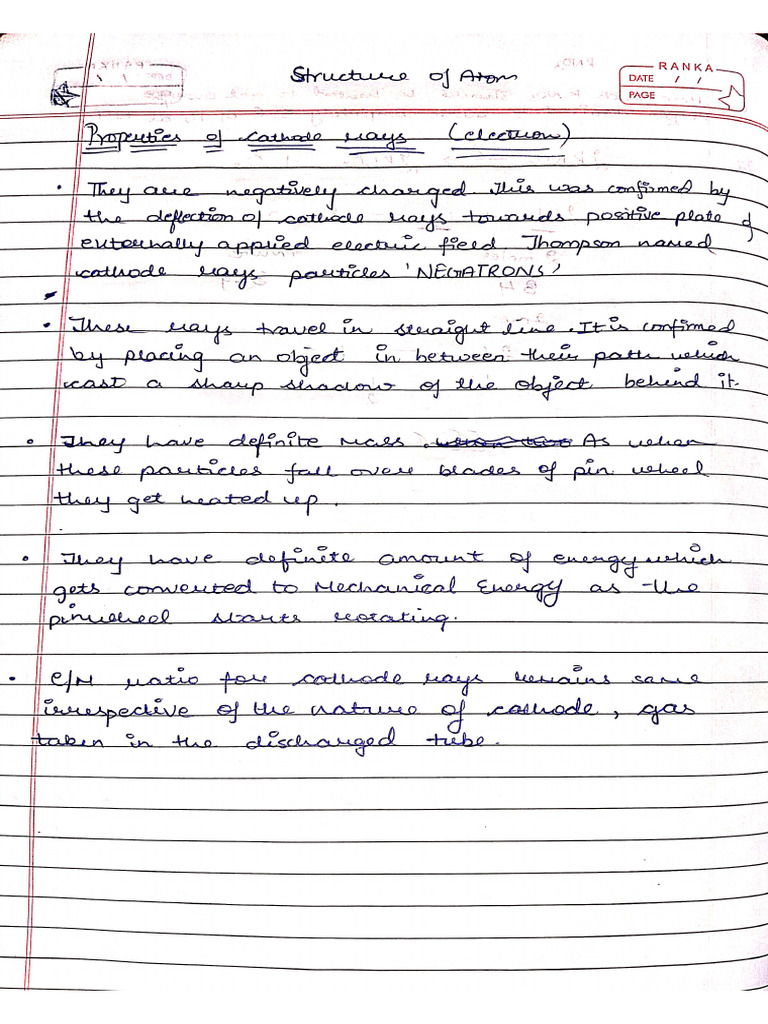 Structure of Atom
RANKA
DATE / /
PAGE
Properties of cathode rays (electron)
• They are negatively charged. This was confirmed by
the deflection of cathode rays towards positive plate of
externally applied electric field. Thompson named
cathode rays particles 'NEGATRONS'
• These rays travel in straight line. It is confirmed
by placing an object in between their path which
cast a sharp shadow of the object behind it.
• They have definite mass. As when
these particles fall over blades of pin wheel
they get heated up.
• They have definite amount of energy which
gets converted to Mechanical Energy as the
pinwheel starts rotating.
• e/M ratio for cathode rays remains same
irrespective of the nature of cathode, gas
taken in the discharged tube.